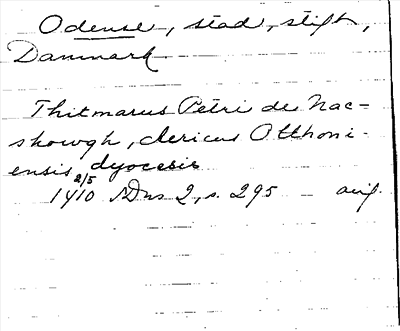 Odense, stad, stift,
Danmark
Thitmarus Petri de Nac=
skowgh, clericus Otthoni-
ensis dyocesis
1410 2/5 SDns 2, s. 295 – avs.